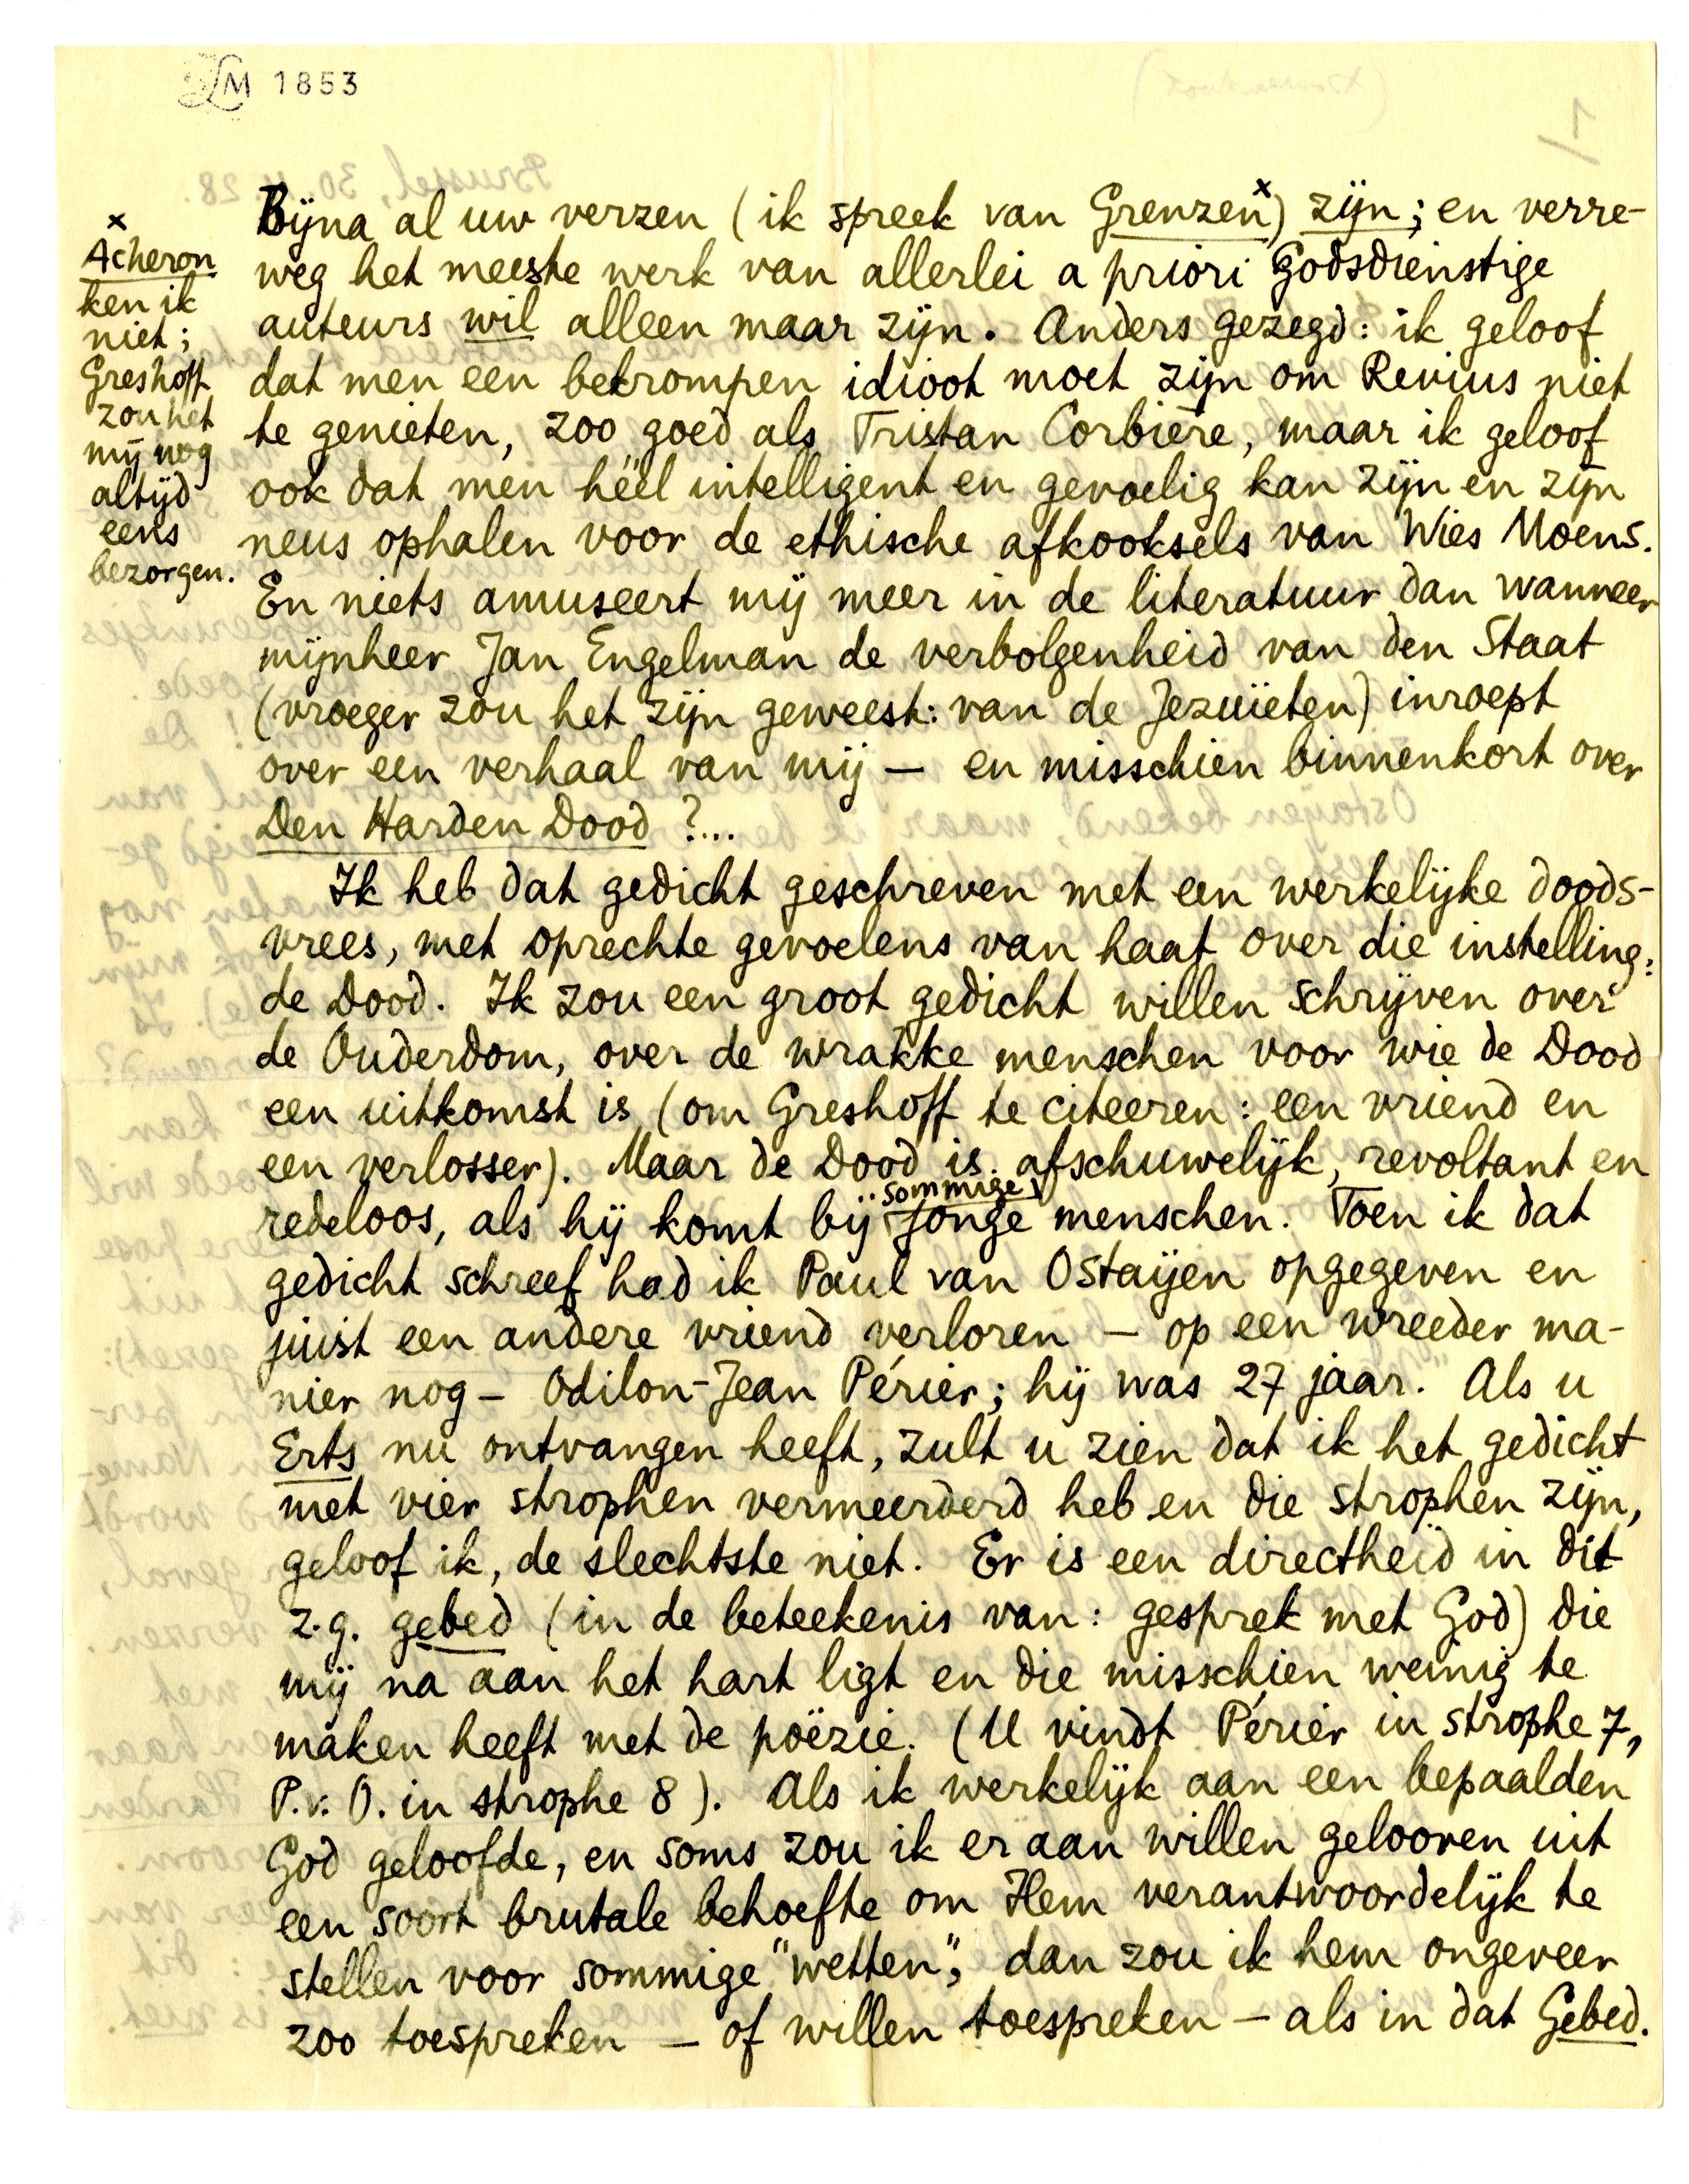 LM 1853
Bijna al uw verzen (ik spreek van Grenzen x) zijn; en verre-
weg het meeste werk van allerlei a priori godsdienstige
auteurs wil alleen maar zijn. Anders gezegd: ik geloof
dat men een bekrompen idioot moet zijn om Revius niet
te genieten, zoo goed als Tristan Corbière, maar ik geloof
ook dat men héél intelligent en gevoelig kan zijn en zijn
neus ophalen voor de ethische afkooksels van Wies Moens.
En niets amuseert mij meer in de literatuur dan wanneer
mijnheer Jan Engelman de verbolgenheid van den Staat
(vroeger zou het zijn geweest: van de Jezuïeten) inroept
over een verhaal van mij — en misschien binnenkort over
Den Harden Dood ?...
Ik heb dat gedicht geschreven met een werkelijke doods-
vrees, met oprechte gevoelens van haat over die instelling:
de Dood. Ik zou een groot gedicht willen schrijven over
de Ouderdom, over de wrakke menschen voor wie de Dood
een uitkomst is (om Greshoff te citeeren: een vriend en
een verlosser). Maar de Dood is afschuwelijk, revoltant en
redeloos, als hij komt bij sommige jonge menschen. Toen ik dat
gedicht schreef had ik Paul van Ostaijen opgegeven en
juist een andere vriend verloren — op een wreeder ma-
nier nog — Odilon-Jean Périer; hij was 27 jaar. Als u
Erts nu ontvangen heeft, zult u zien dat ik het gedicht
met vier strophen vermeerderd heb en die strophen zijn,
geloof ik, de slechtste niet. Er is een directheid in dit
z.g. gebed (in de beteekenis van: gesprek met God) die
mij na aan het hart ligt en die misschien weinig te
maken heeft met de poëzie. (U vindt Périer in strophe 7,
P.v.O. in strophe 8). Als ik werkelijk aan een bepaalden
God geloofde, en soms zou ik er aan willen gelooven uit
een soort brutale behoefte om Hem verantwoordelijk te
stellen voor sommige "wetten", dan zou ik hem ongeveer
zoo toespreken — of willen toespreken — als in dat Gebed.
x
Acheron
ken ik
niet;
Greshoff
zou het
mij nog
altijd
eens
bezorgen.